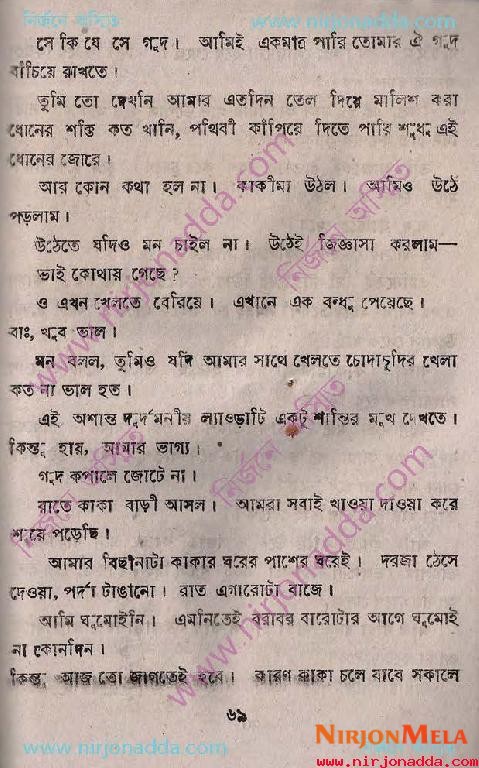 নির্জনে অস্মিতে
www.nirjonadda.com
সে কি যে সে গুদ। আমিই একমাত্র পারি তোমার ঐ গুদ
বাঁচিয়ে রাখতে।
তুমি তো দেখনি আমার এতদিন তেল দিয়ে মালিশ করা
ধোনের শক্তি কত খানি, পৃথিবী কাঁপিয়ে দিতে পারি শুধু এই
ধোনের জোরে।
আর কোন কথা হল না। কাকীমা উঠল। আমিও উঠে
পড়লাম।
উঠতে যদিও মন চাইল না। উঠেই জিজ্ঞাসা করলাম—
ভাই কোথায় গেছে?
ও এখন খেলতে বেরিয়ে। এখানে এক বন্ধু পেয়েছে।
বাঃ, খুব ভাল।
মন বলল, তুমিও যদি আমার সাথে খেলতে চোদাচুদির খেলা
কত না ভাল হত।
এই অশান্ত দুর্দমনীয় ল্যাওড়াটি একটু শান্তির মুখ দেখতে।
কিন্তু হায়, আমার ভাগ্য।
গুদ কপালে জোটে না।
রাতে কাকা বাড়ী আসল। আমরা সবাই খাওয়া দাওয়া করে
শুয়ে পড়েছি।
আমার বিছানাটা কাকার ঘরের পাশের ঘরেই। দরজা ঠেসে
দেওয়া, পর্দা টাঙানো। রাত এগারোটা বাজে।
আমি ঘুমোইনি। এমনিতেই বরাবর বারোটার আগে ঘুমোই
না কোনদিন।
কিন্তু আজ তো জাগতেই হবে। কারণ কাকা চলে যাবে সকালে
৬৯
NIRJONMELA
www.nirjonadda.com
www.nirjonadda.com